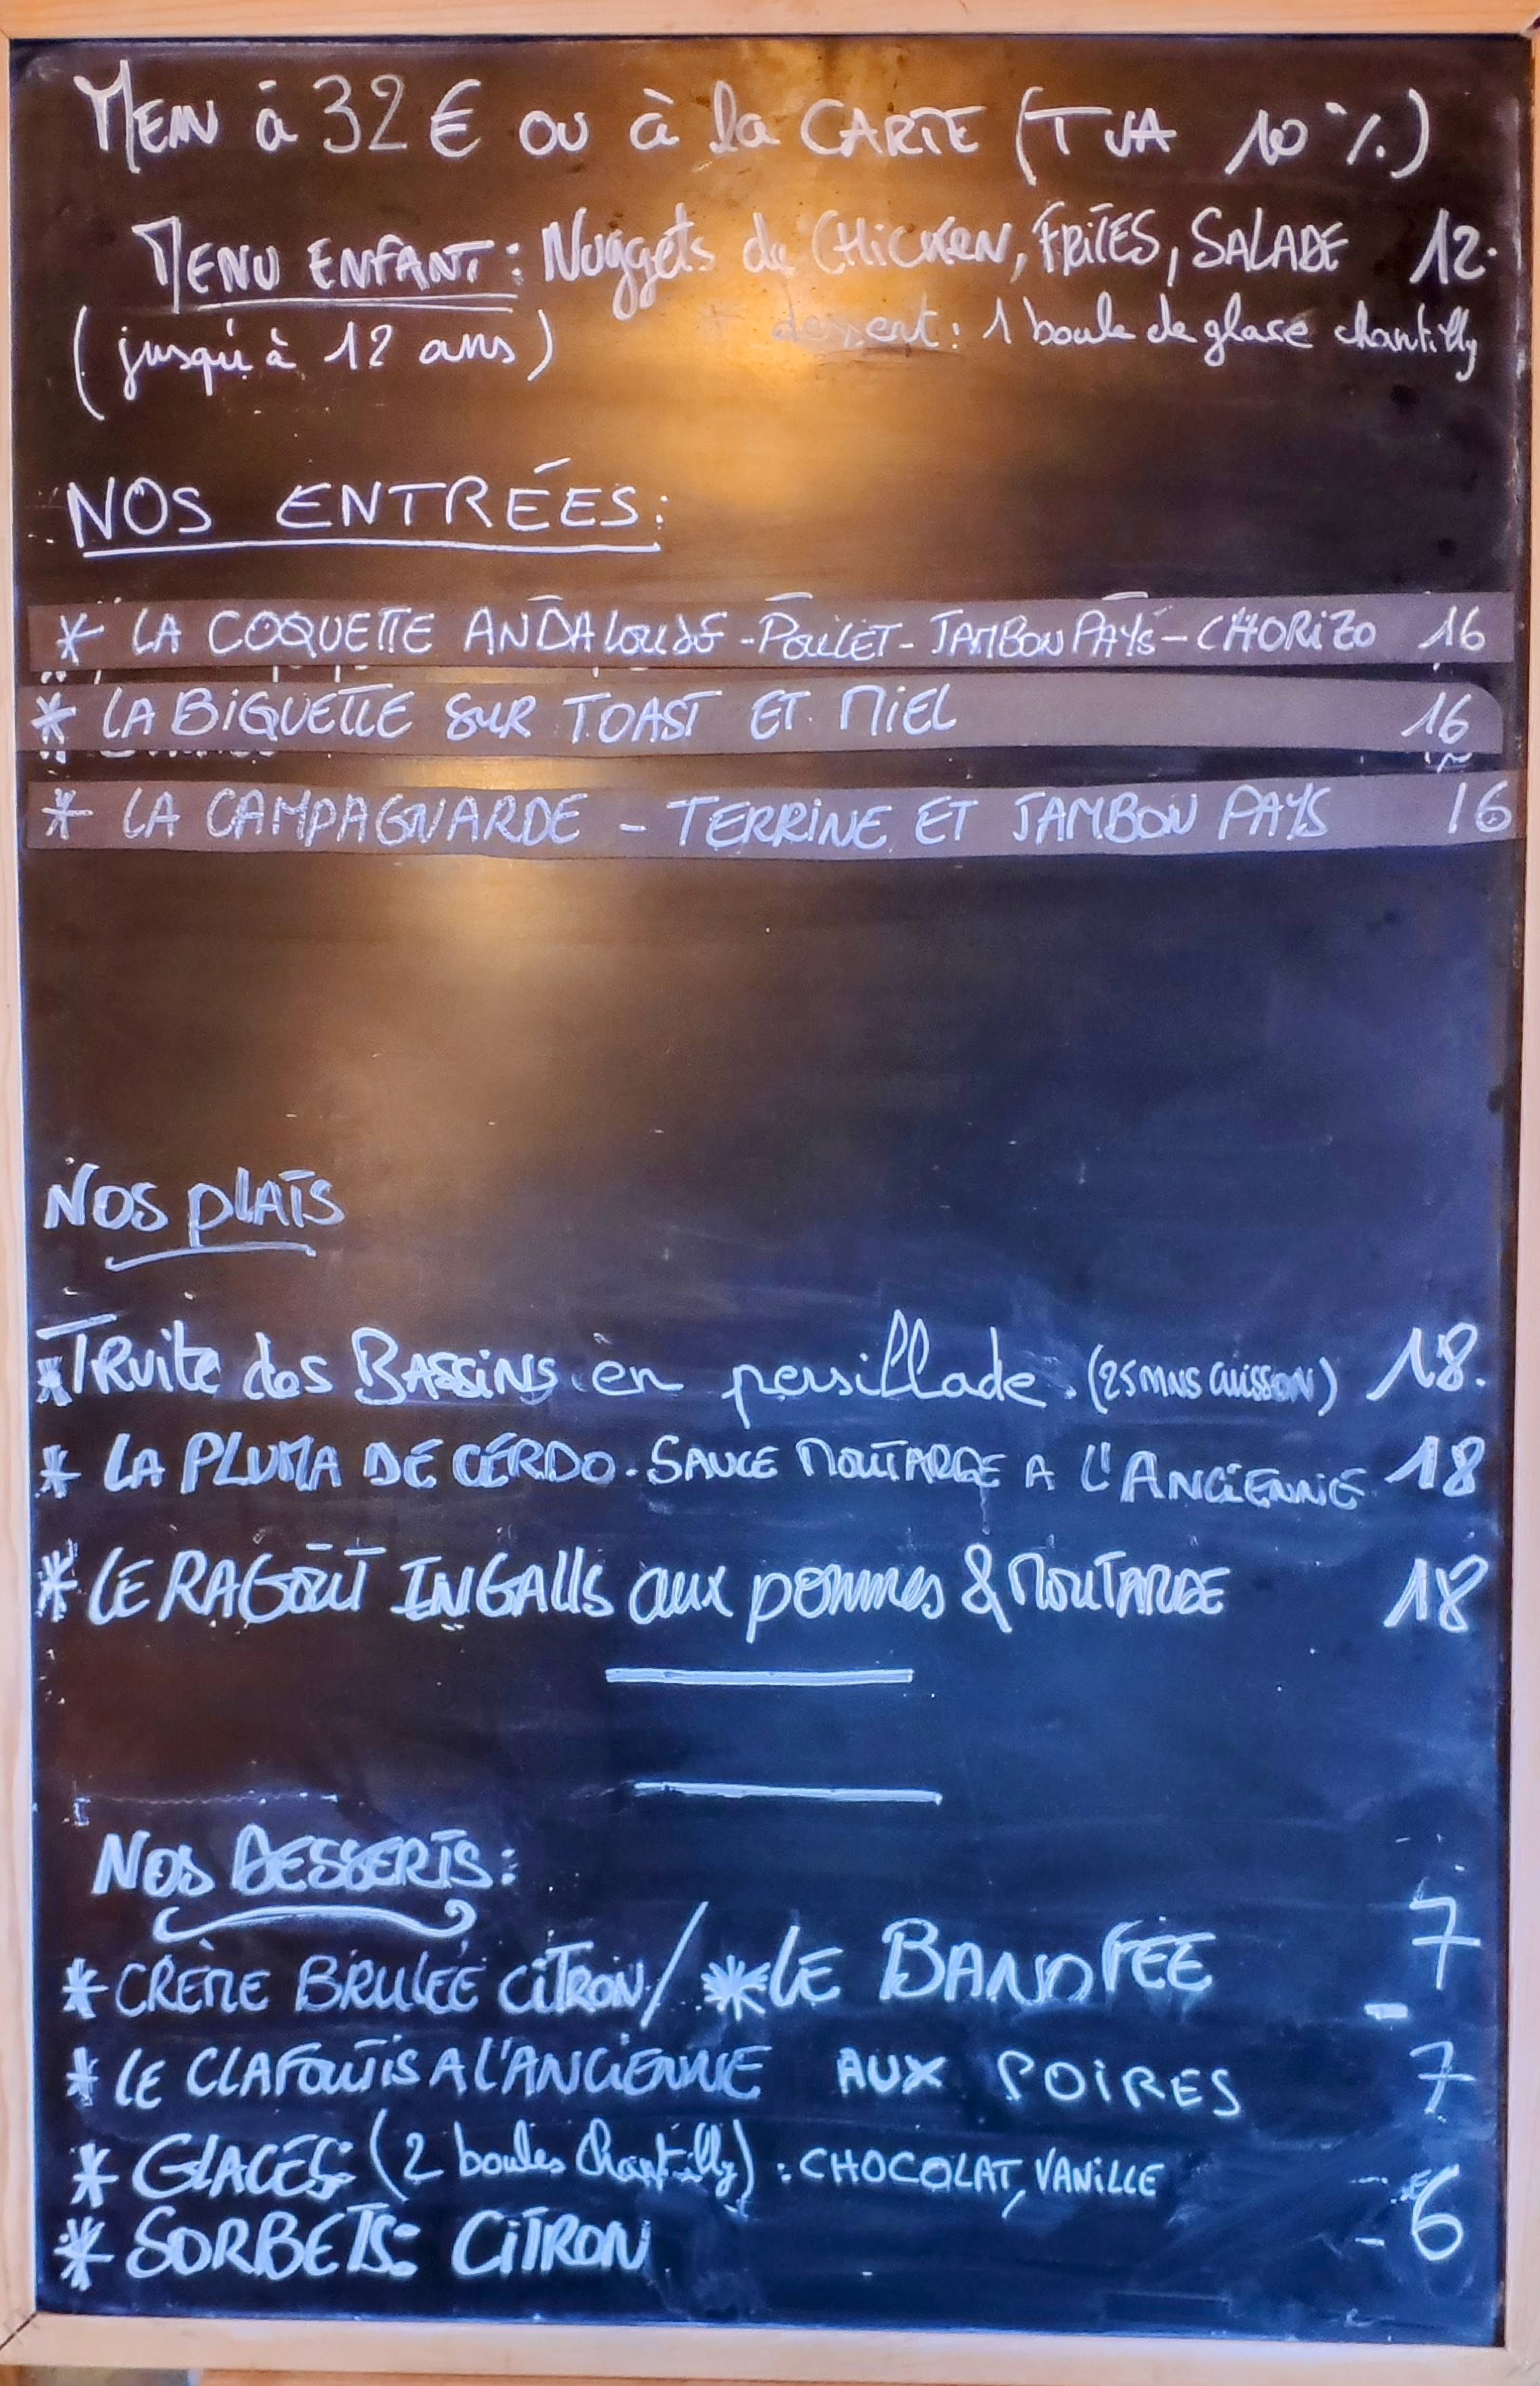 MENU à 32 € OU à la CARTE (TVA 10 %.)
MENU ENFANT : Nuggets de CHICKEN, FRITES, SALADE 12.
(jusqu'à 12 ans) dessert : 1 boule de glase chantilly
NOS ENTRÉES :
* LA COQUETTE ANDALOUSE - POULET - JAMBON PAYS - CHORIZO 16
* LA BIQUETTE SUR TOAST ET MIEL 16
* LA CAMPAGNARDE - TERRINE ET JAMBON PAYS 16
NOS PLATS
* TRuite des BASSINS en persillade. (25 MNS CUISSON) 18.
* LA PLUMA DE CERDO. SAUCE MOUTARDE A L'ANCIENNE 18
* LE RAGOÛT INGALLS aux pommes & MOUTARDE 18
NOS DESSERTS :
* CRÈME BRULÉE CITRON / * LE BANOFEE 7
* LE CLAFOUTIS A L'ANCIENNE AUX POIRES 7
* GLACES (2 boules Chantilly) : CHOCOLAT, VANILLE
* SORBETS : CITRON - 6